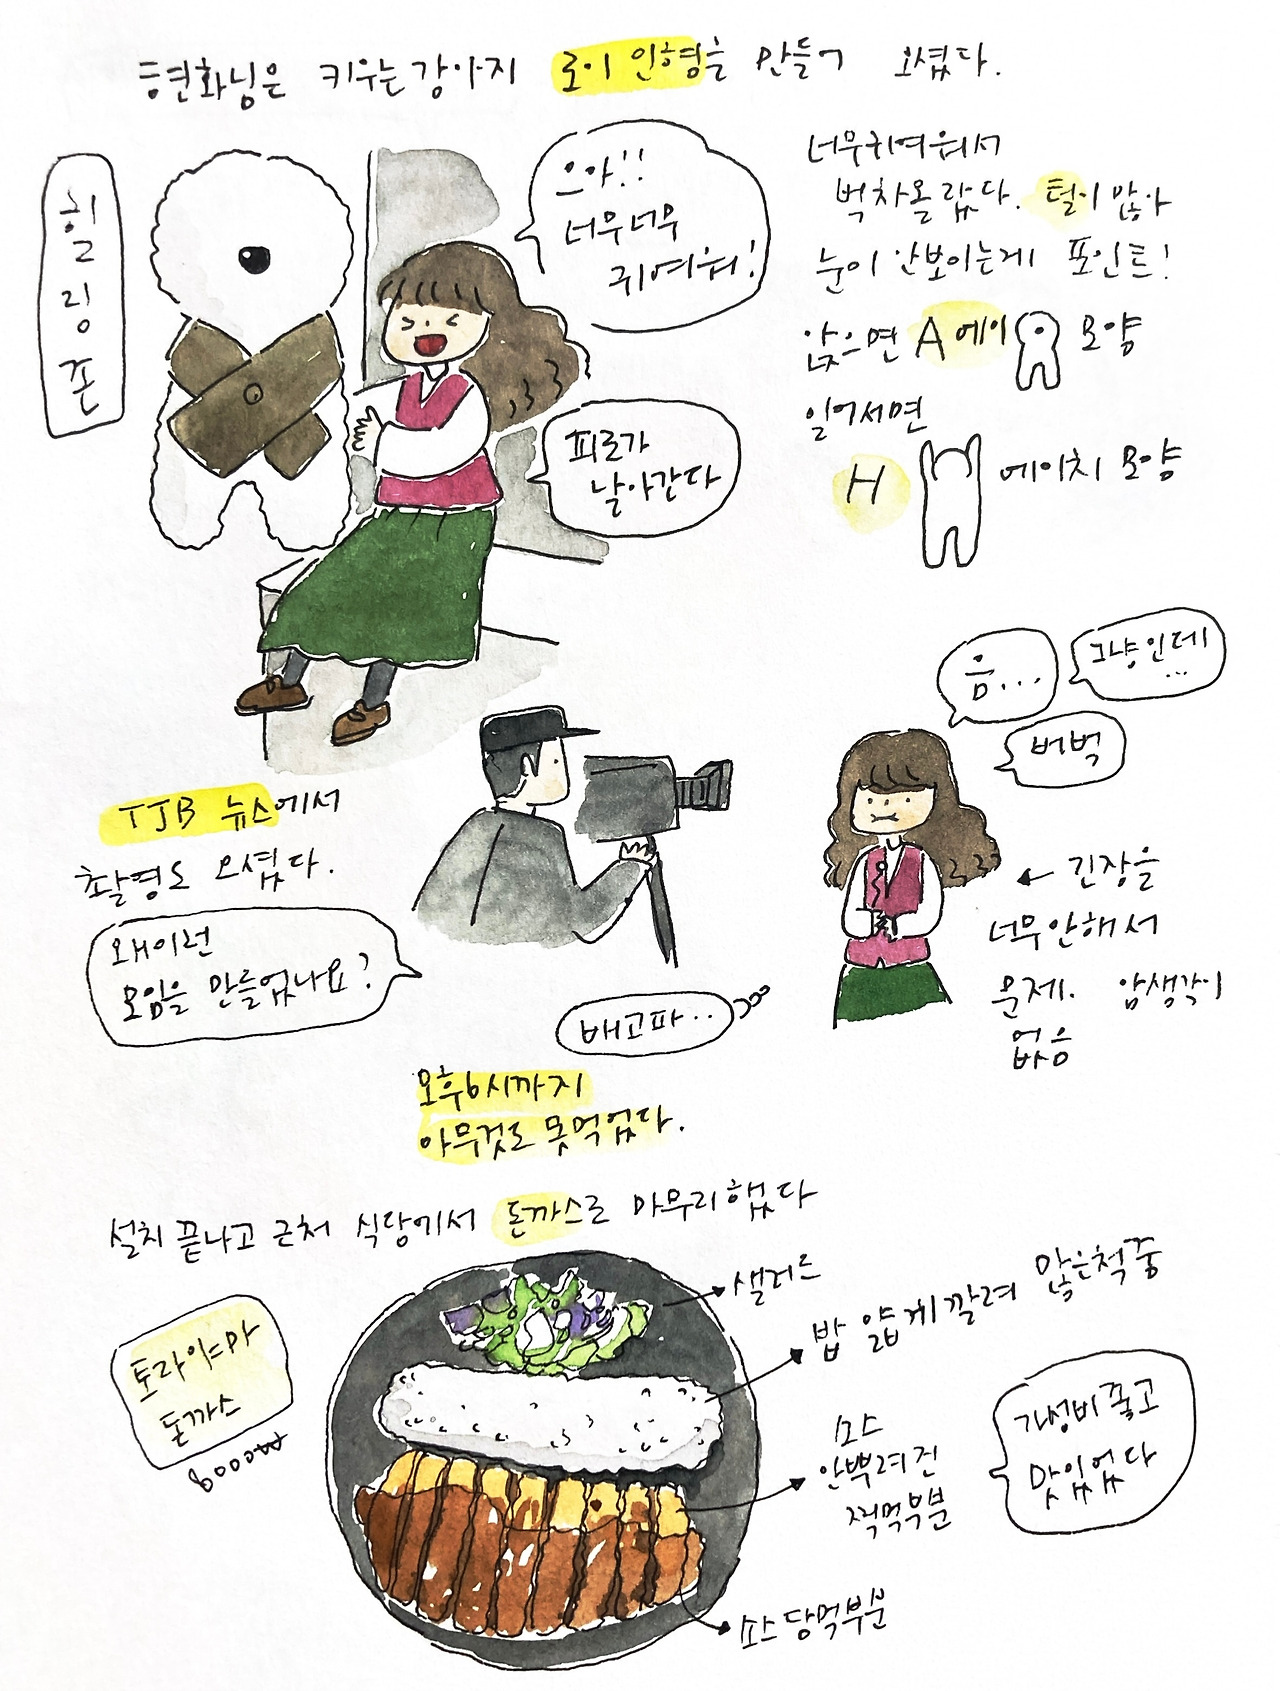 동현화님은 키우는 강아지 로이 인형을 만들어 오셨다.
힐링존
으아!!
너무너무
귀여워!
너무귀여워서
벅차올랐다. 털이 많아
눈이 안보이는게 포인트!
앉으면 A 에이 모양
일어서면
H 에이치 모양
피로가
날아간다
음...
그냥인데
...
버벅
TJB 뉴스에서
촬영도 오셨다.
왜이런
모임을 만들었나요?
← 긴장을
너무안해서
문제. 암생각이
없음
배고파..
오후6시까지
아무것도 못먹었다.
설치 끝나고 근처 식당에서 돈까스로 마무리했다
샐러드
밥 얇게깔려 많은척중
토라이
돈까스
소스
안뿌려진
찍먹부분
가성비좋고
맛있었다
소스 담먹부분